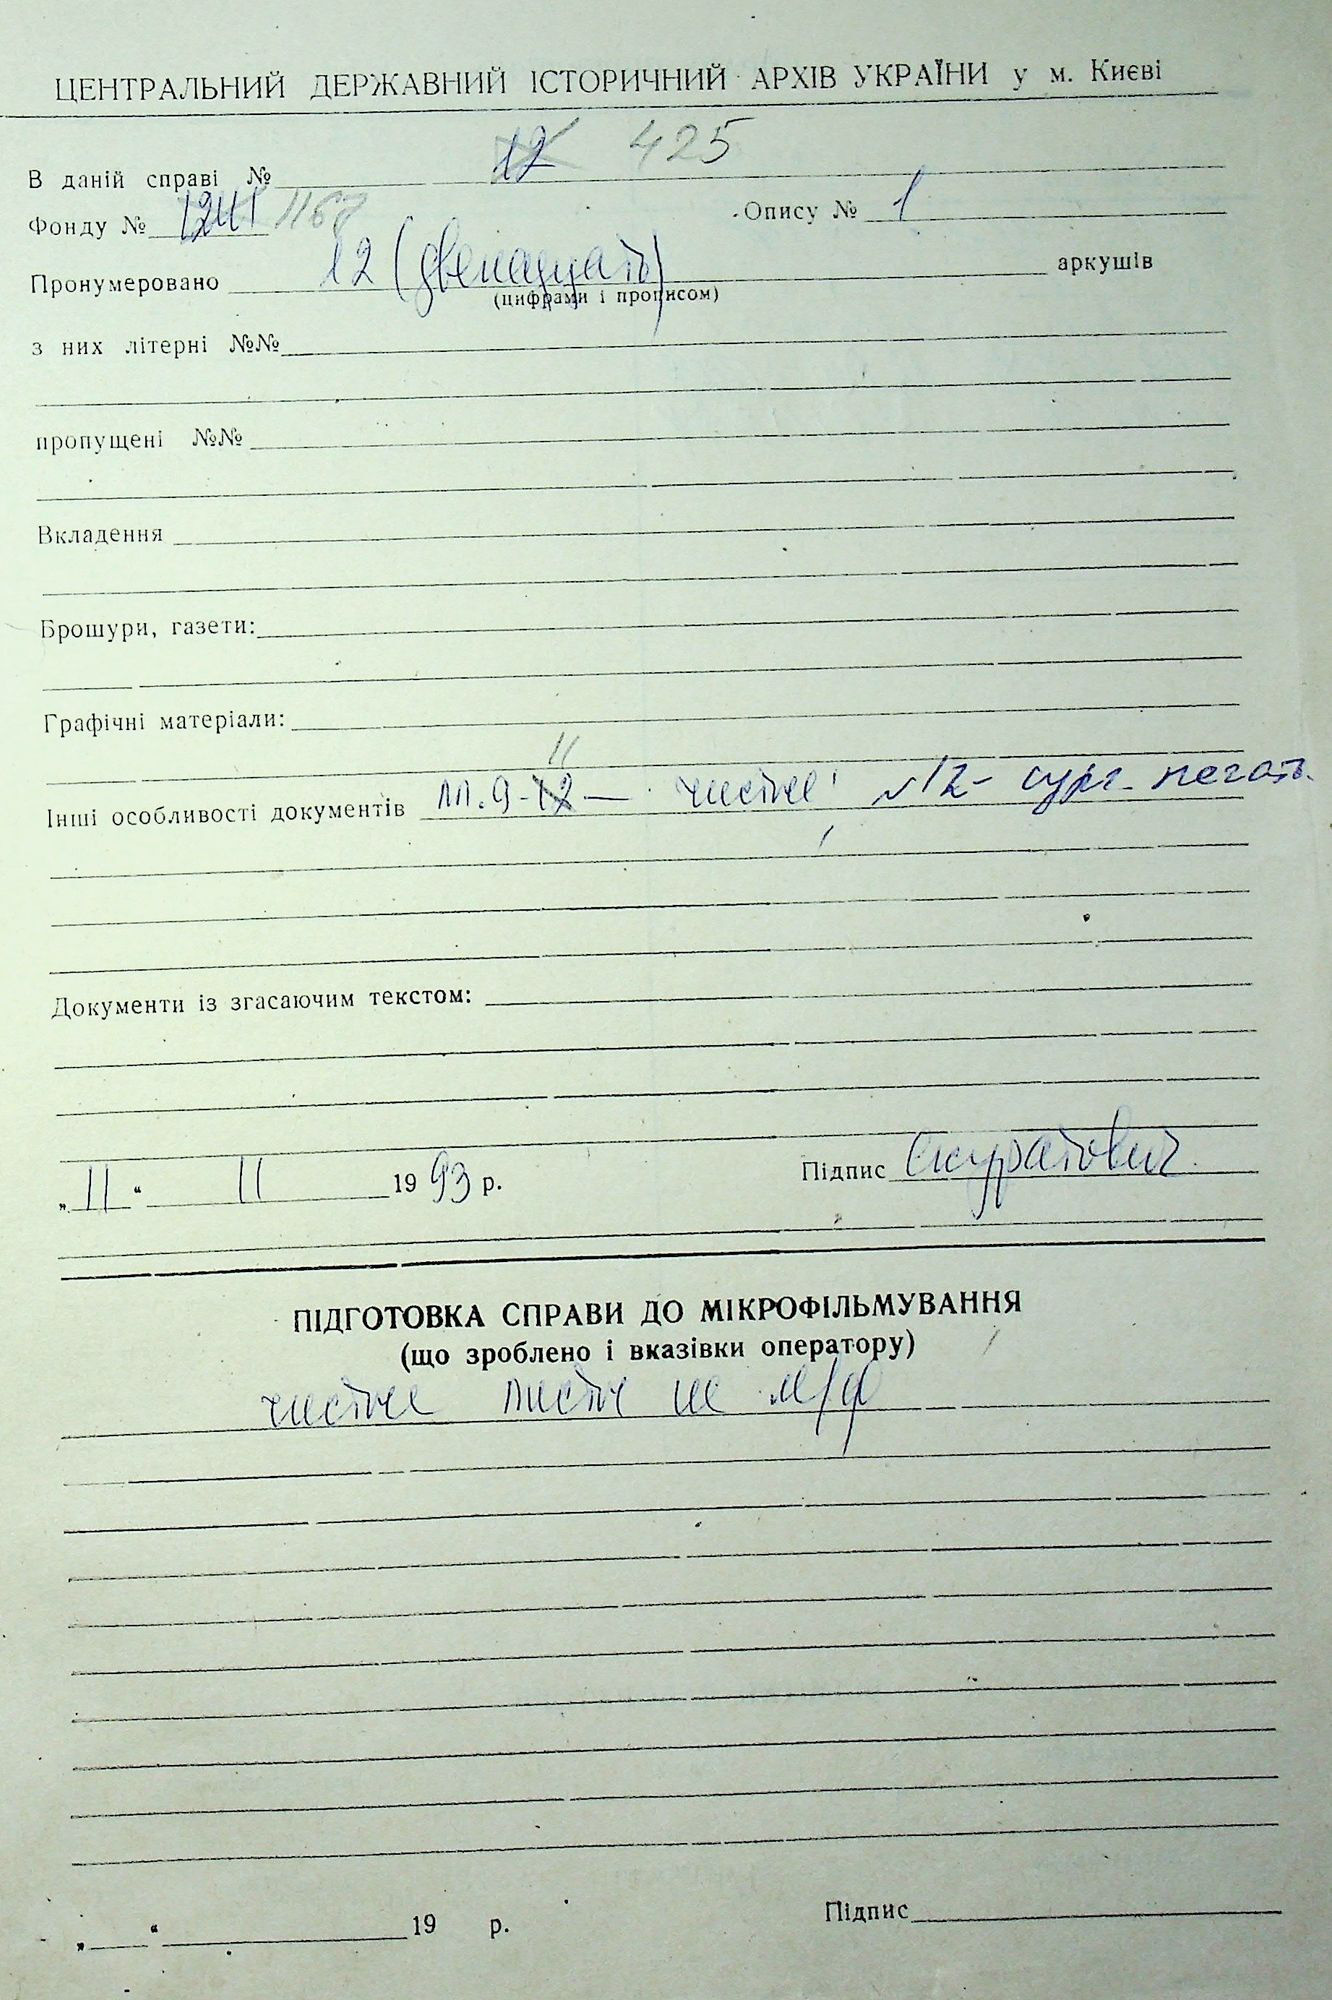 ЦЕНТРАЛЬНИЙ ДЕРЖАВНИЙ ІСТОРИЧНИЙ АРХІВ УКРАЇНИ у м. Києві
В даній справі № 12 425
Фонду № 1241 1167 Опису № 1
Пронумеровано 12 (двенадцать) аркушів
(цифрами і прописом)
з них літерні №№
пропущені №№
Вкладення
Брошури, газети:
Графічні матеріали:
11
Інші особливості документів лл. 9-12 — чистые, л 12 - сург. печать.
Документи із згасаючим текстом:
„11“ 11 1993 р. Підпис Скуратович
ПІДГОТОВКА СПРАВИ ДО МІКРОФІЛЬМУВАННЯ
(що зроблено і вказівки оператору)
чистые листы не м/ф
„ “ 19 р. Підпис